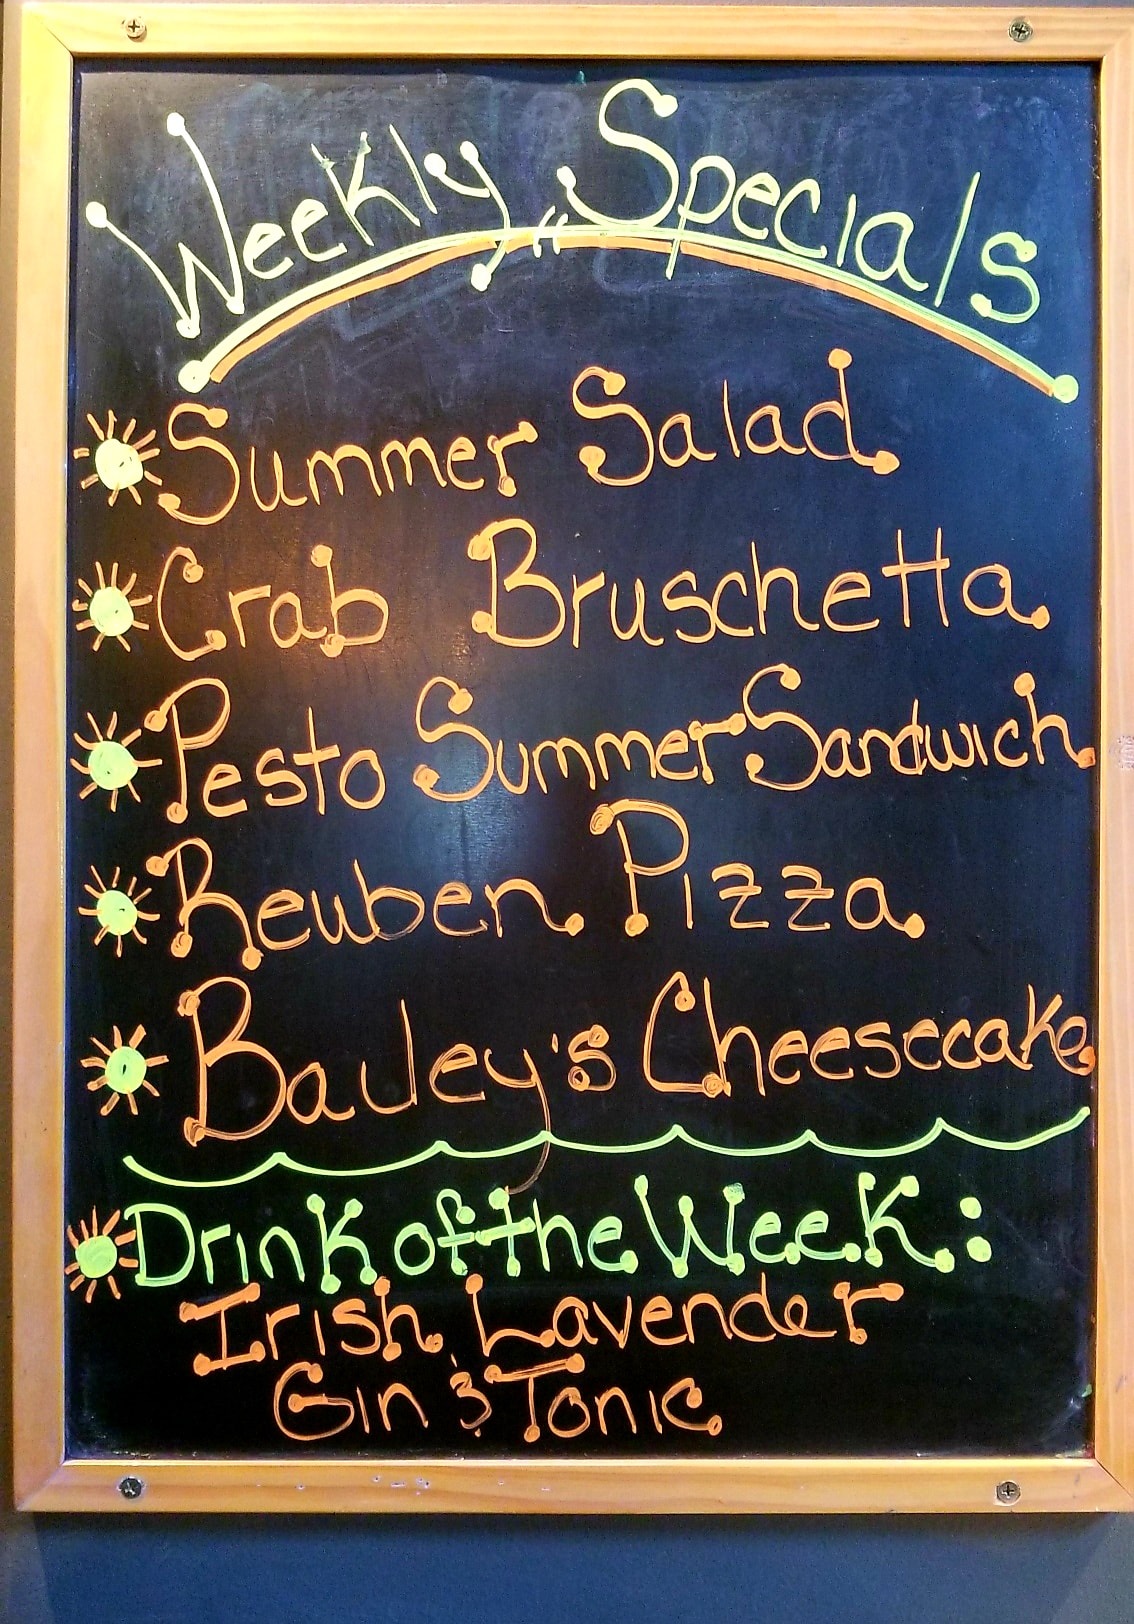 Weekly Specials
Summer Salad
Crab Bruschetta
Pesto Summer Sandwich
Reuben Pizza
Bailey's Cheesecake
Drink of the Week:
Irish Lavender
Gin & Tonic